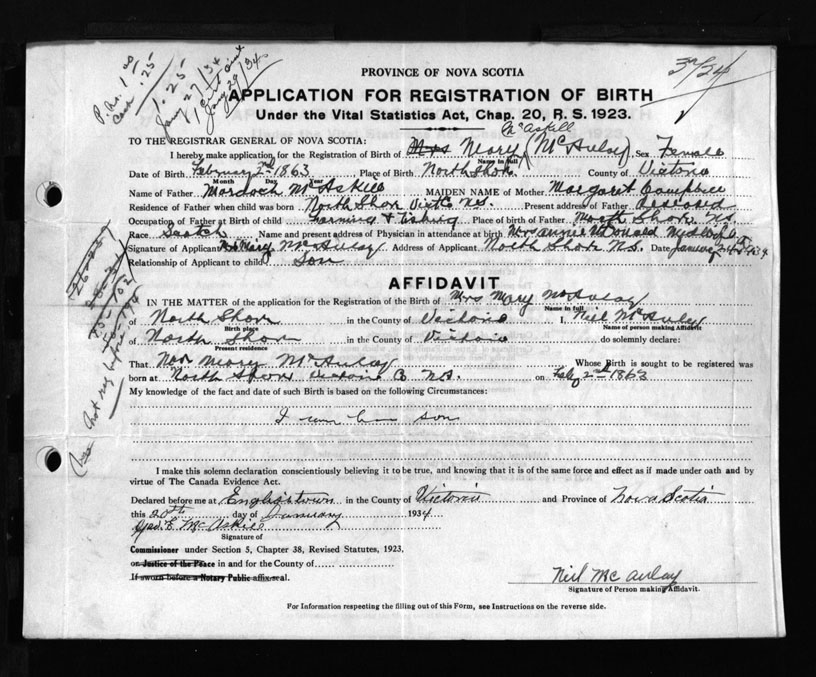 P. N. 1.00
Cash .25
1.25
Jany 27/34
Jany 29/34
PROVINCE OF NOVA SCOTIA
APPLICATION FOR REGISTRATION OF BIRTH
Under the Vital Statistics Act, Chap. 20, R. S. 1923.
McAskill
TO THE REGISTRAR GENERAL OF NOVA SCOTIA:
I hereby make application for the Registration of Birth of Mrs Mary (McAulay) Sex Female
Name in full
Date of Birth February 2nd 1863 Place of Birth North Shore County of Victoria
Month Day Year
Name of Father Murdoch McAskill MAIDEN NAME of Mother Margaret Campbell
Residence of Father when child was born North Shore Vict Co N.S. Present address of Father Deceased
Occupation of Father at Birth of child Farming & Fishing Place of birth of Father North Shore N.S.
Race Scotch Name and present address of Physician in attendance at birth Mrs Annie McDonald
Signature of Applicant Mrs Mary McAulay Address of Applicant North Shore N.S. Date January 1934
Relationship of Applicant to child Son
AFFIDAVIT
IN THE MATTER of the application for the Registration of the Birth of Mrs Mary McAulay
Name in full
of North Shore in the County of Victoria I, Neil McAulay
Birth place Name of person making Affidavit
of North Shore in the County of Victoria do solemnly declare:
Present residence
That Mary McAulay Whose Birth is sought to be registered was
born at North Shore Victoria Co N.S. on Feby 2nd 1863
My knowledge of the fact and date of such Birth is based on the following Circumstances:
I am her son
I make this solemn declaration conscientiously believing it to be true, and knowing that it is of the same force and effect as if made under oath and by
virtue of The Canada Evidence Act.
Declared before me at Englishtown in the County of Victoria and Province of Nova Scotia
this 20th day of January 1934
Geo. E. McAskill
Signature of
Commissioner under Section 5, Chapter 38, Revised Statutes, 1923.
or Justice of the Peace in and for the County of
If sworn before a Notary Public affix seal.
Neil McAulay
Signature of Person making Affidavit.
For Information respecting the filling out of this Form, see Instructions on the reverse side.